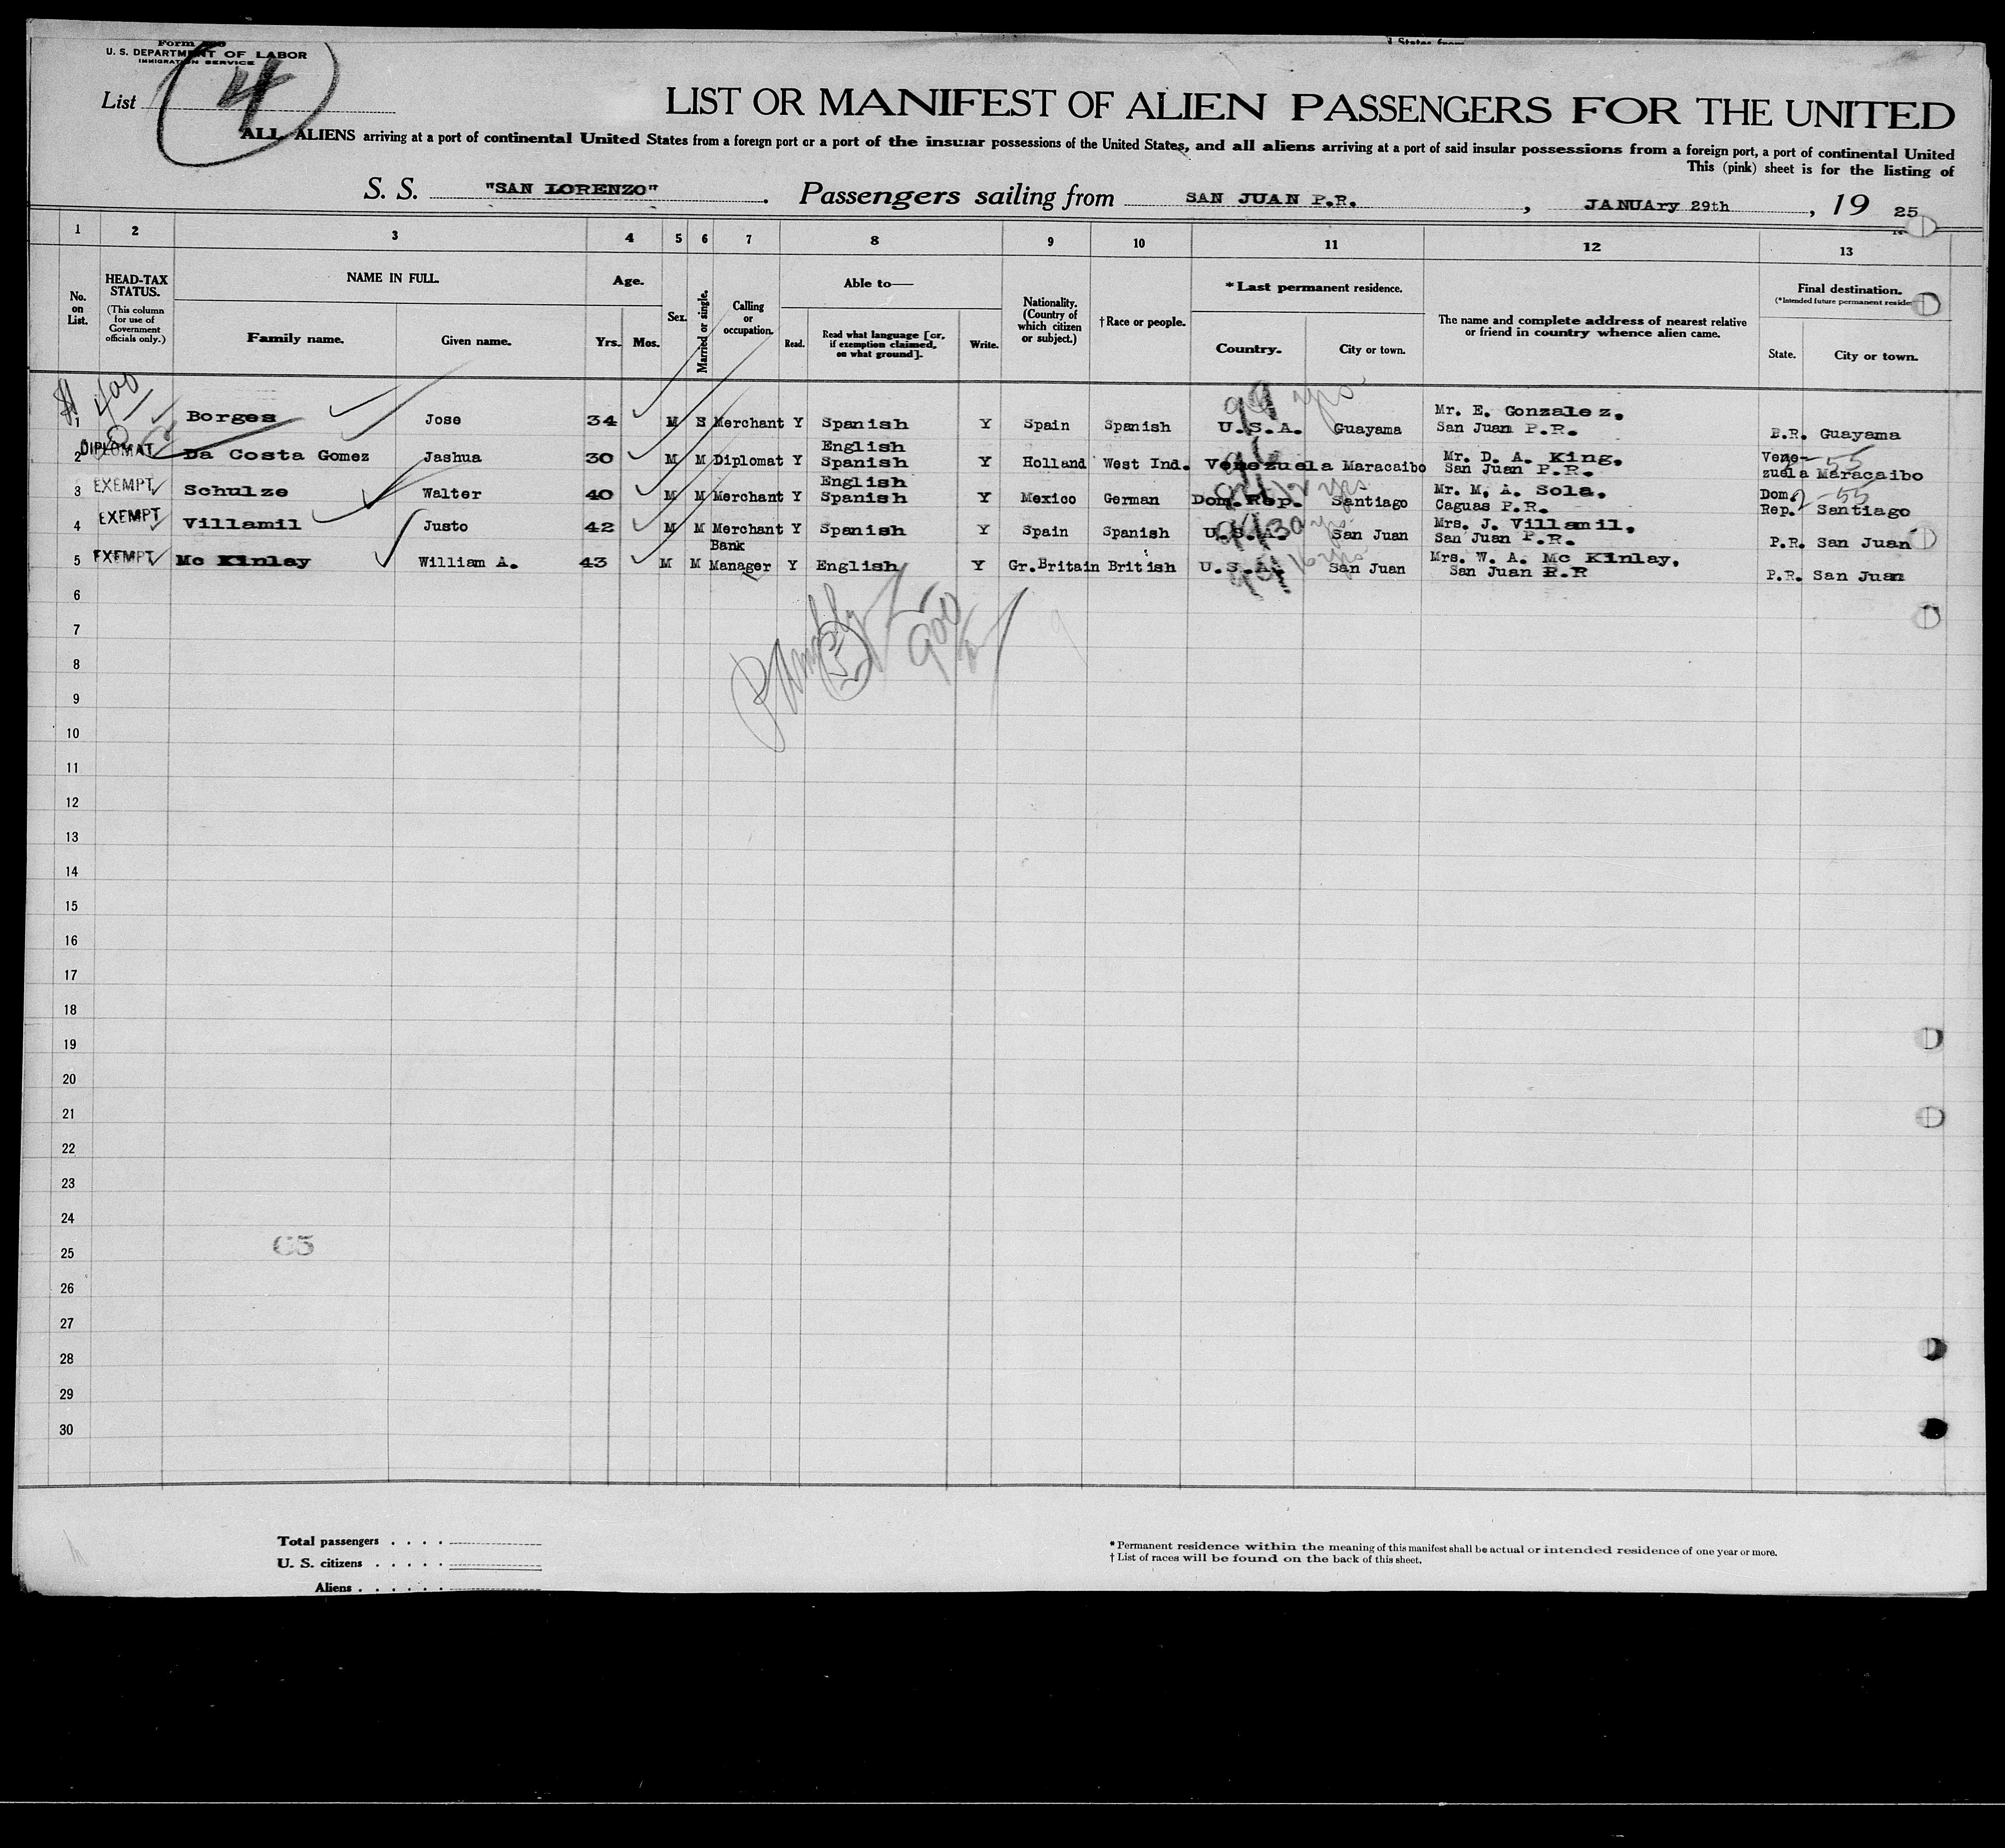 Form
U. S. DEPARTMENT OF LABOR
IMMIGRATION SERVICE
List 4
LIST OR MANIFEST OF ALIEN PASSENGERS FOR THE UNITED
ALL ALIENS arriving at a port of continental United States from a foreign port or a port of the insular possessions of the United States, and all aliens arriving at a port of said insular possessions from a foreign port, a port of continental United
This (pink) sheet is for the listing of
S. S. "SAN LORENZO". Passengers sailing from SAN JUAN P.R., JANUAry 29th, 19 25
1 2 3 4 5 6 7 8 9 10 11 12 13
No. on List.
HEAD-TAX STATUS.
(This column for use of Government officials only.)
NAME IN FULL.
Family name. Given name.
Age.
Yrs. Mos.
Sex.
Married or single.
Calling or occupation.
Able to—
Read. Read what language [or, if exemption claimed, on what ground]. Write.
Nationality. (Country of which citizen or subject.)
†Race or people.
*Last permanent residence.
Country. City or town.
The name and complete address of nearest relative or friend in country whence alien came.
Final destination.
(*Intended future permanent reside
State. City or town.
1 Borges Jose 34 M S Merchant Y Spanish Y Spain Spanish U.S.A. Guayama Mr. E. Gonzalez. San Juan P.R. P.R. Guayama
2 DIPLOMAT Da Costa Gomez Jashua 30 M M Diplomat Y English Spanish Y Holland West Ind. Venezuela Maracaibo Mr. D. A. King. San Juan P.R. Vene-zuela Maracaibo
3 EXEMPT Schulze Walter 40 M M Merchant Y English Spanish Y Mexico German Dom. Rep. Santiago Mr. M. A. Sola. Caguas P.R. Dom. Rep. Santiago
4 EXEMPT Villamil Justo 42 M M Merchant Y Spanish Y Spain Spanish U.S.A. San Juan Mrs. J. Villamil. San Juan P.R. P.R. San Juan
5 EXEMPT Mc Kinley William A. 43 M M Bank Manager Y English Y Gr.Britain British U.S.A. San Juan Mrs. W. A. Mc Kinley. San Juan P.R P.R. San Juan
6
7
8
9
10
11
12
13
14
15
16
17
18
19
20
21
22
23
24
C5
25
26
27
28
29
30
Total passengers . . . .
U. S. citizens . . . . .
Aliens . . . . . .
* Permanent residence within the meaning of this manifest shall be actual or intended residence of one year or more.
† List of races will be found on the back of this sheet.